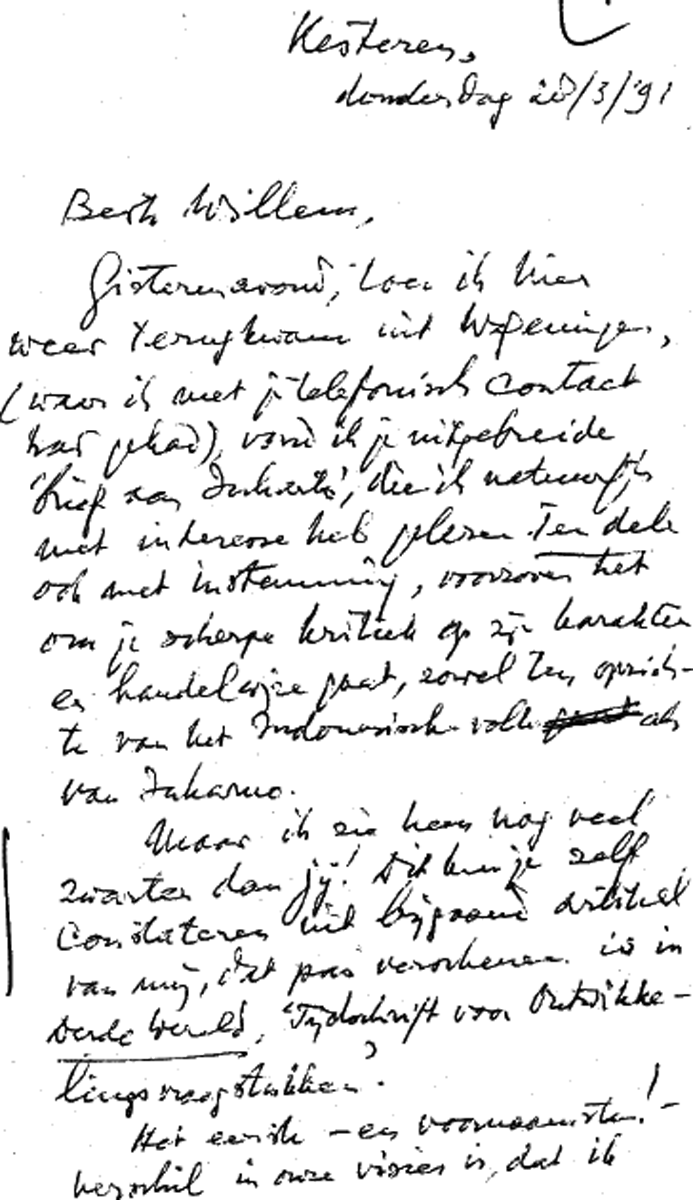 Kesteren,
donderdag 28/3/'91
Beste Willem,
Gisterenavond, toen ik hier
weer terugkwam uit Wageningen,
(waar ik met je telefonisch contact
had gehad), vond ik je uitgebreide
'brief aan Suharto', die ik natuurlijk
met interesse heb gelezen. Ten dele
ook met instemming, voorzover het
om je scherpe kritiek op zijn karakter
en handelwijze gaat, zowel ten opzich-
te van het Indonesische volk als
van Sukarno.
Maar ik zie hem nog veel
zwarter dan jij! Dit kun je zelf
constateren uit bijgaand artikel
van mij, dat pas verschenen is in
Derde Wereld, 'Tijdschrift voor Ontwikke-
lingsvraagstukken'.
Het eerste - en voornaamste! -
verschil in onze visies is, dat ik